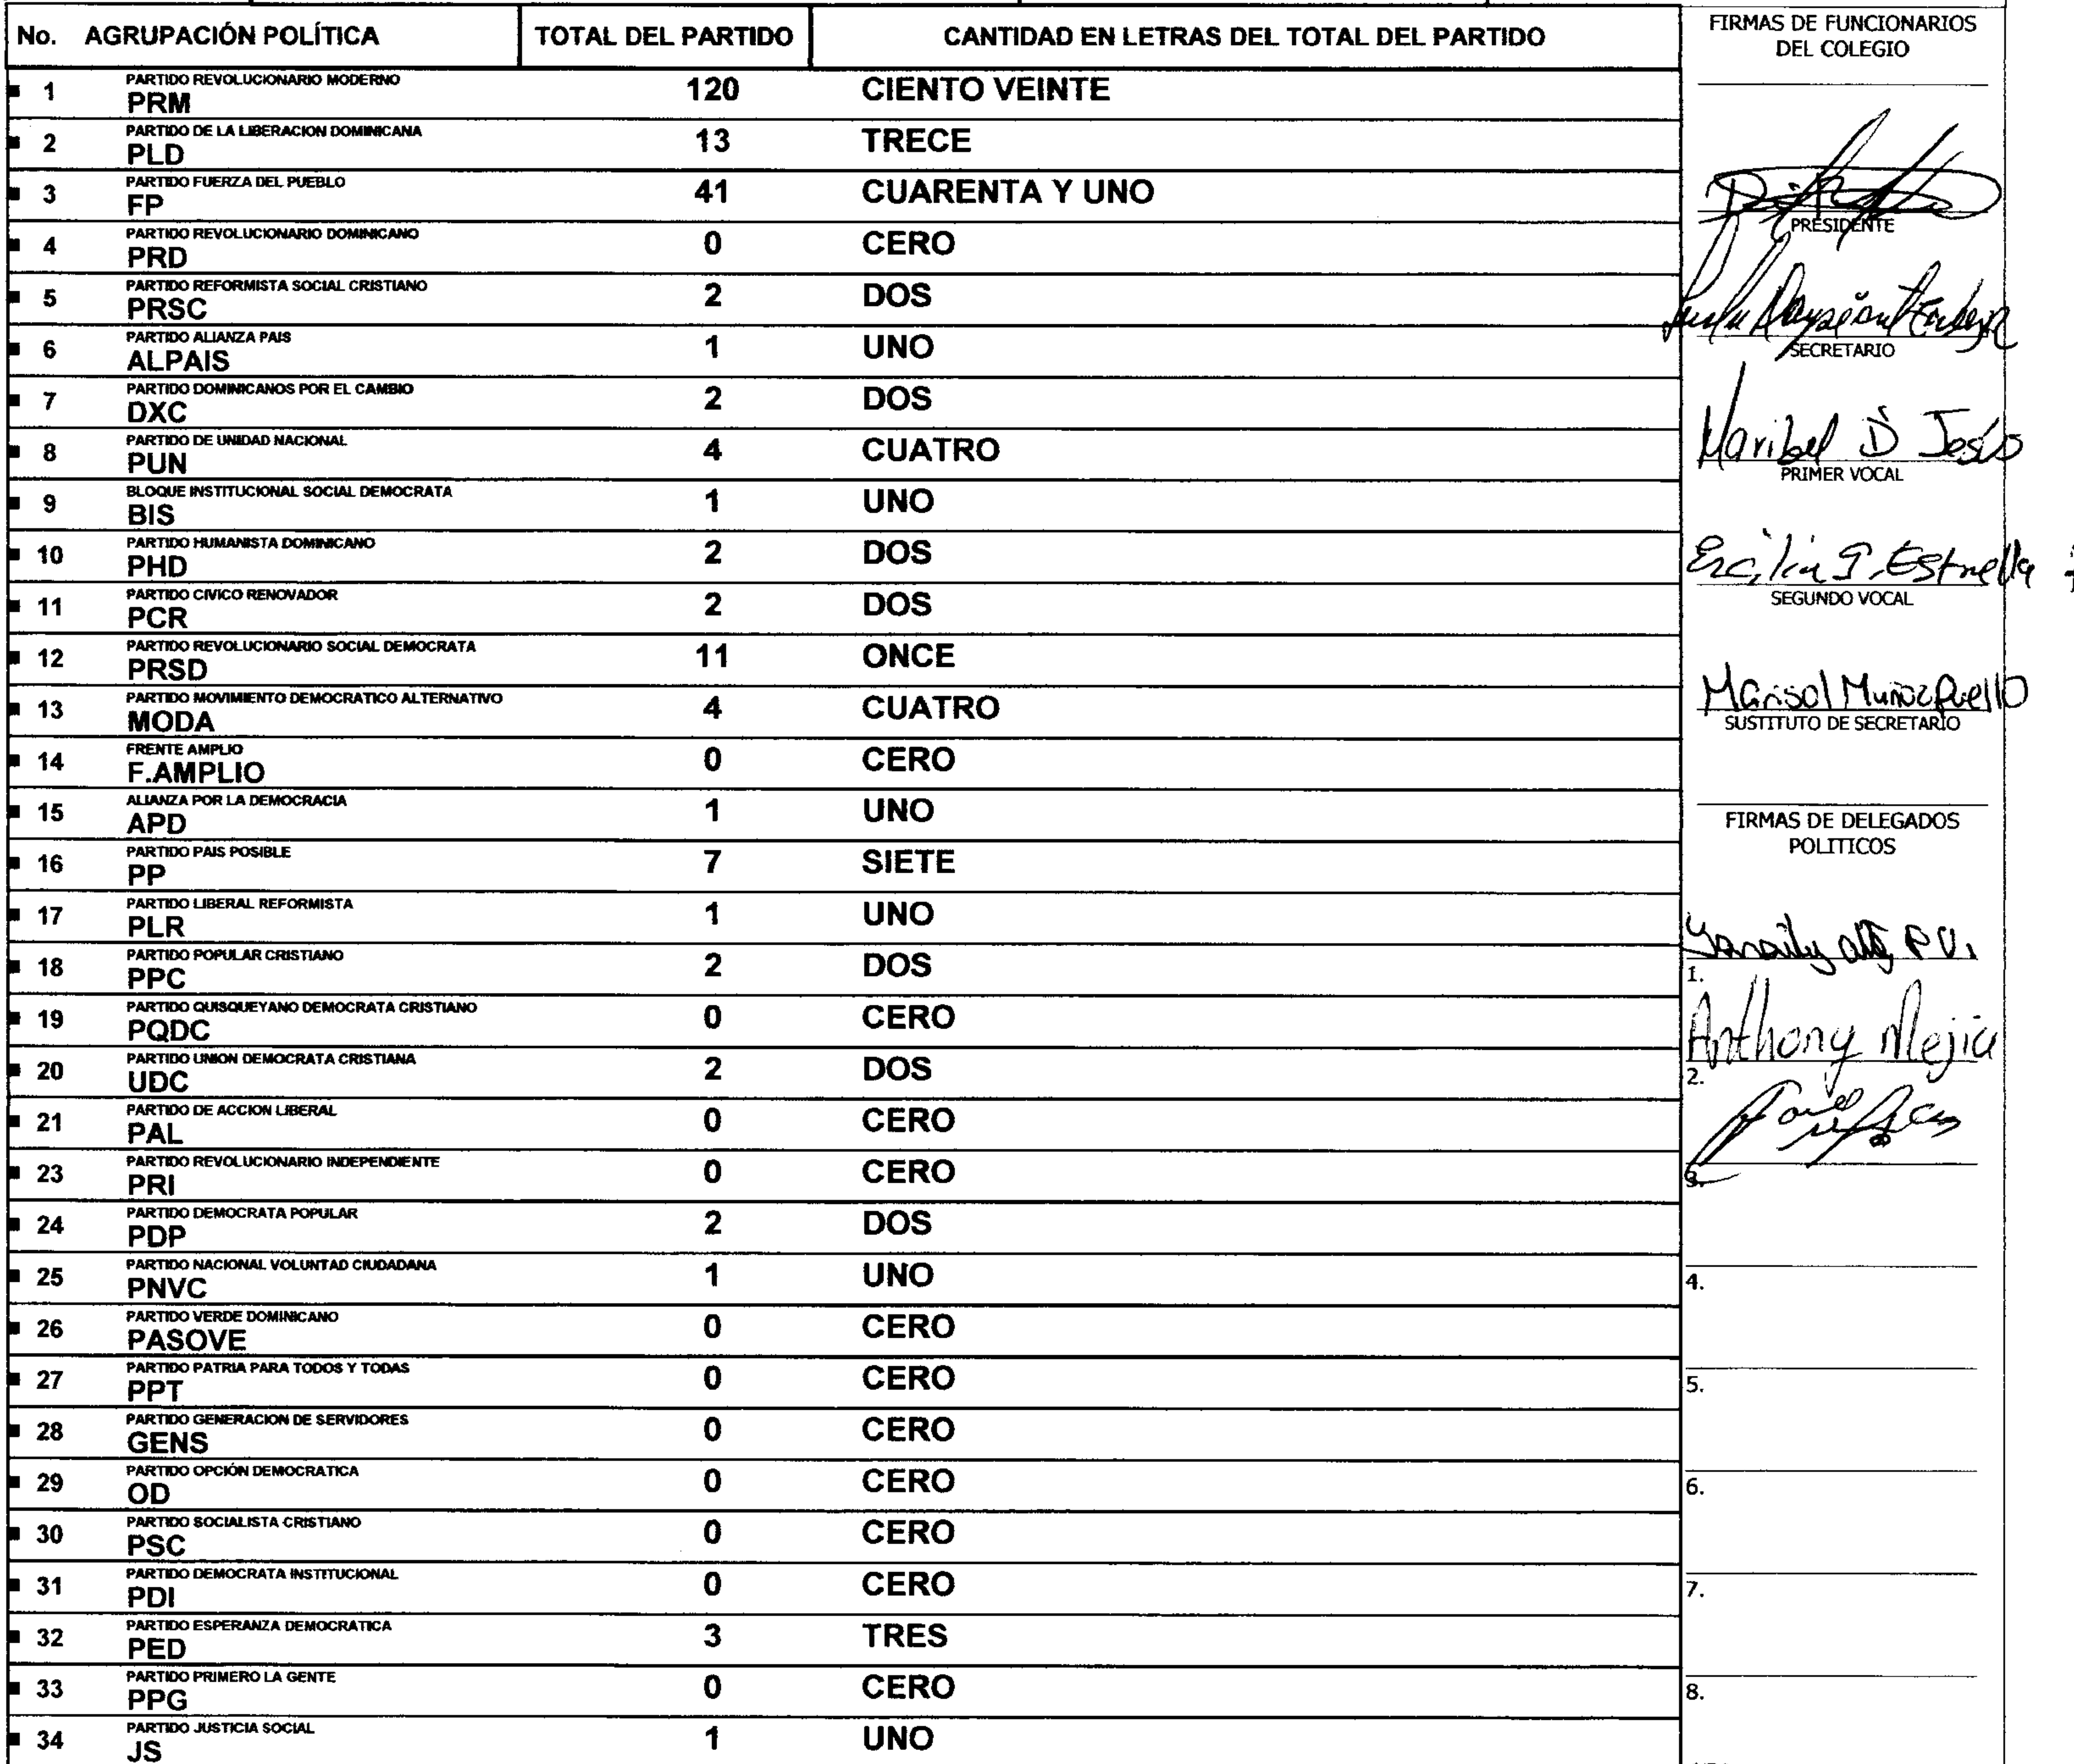 No. AGRUPACIÓN POLÍTICA TOTAL DEL PARTIDO CANTIDAD EN LETRAS DEL TOTAL DEL PARTIDO
PARTIDO REVOLUCIONARIO MODERNO
1 PRM 120 CIENTO VEINTE
PARTIDO DE LA LIBERACION DOMINICANA
2 PLD 13 TRECE
PARTIDO FUERZA DEL PUEBLO
3 FP 41 CUARENTA Y UNO
PARTIDO REVOLUCIONARIO DOMINICANO
4 PRD 0 CERO
PARTIDO REFORMISTA SOCIAL CRISTIANO
5 PRSC 2 DOS
PARTIDO ALIANZA PAIS
6 ALPAIS 1 UNO
PARTIDO DOMINICANOS POR EL CAMBIO
7 DXC 2 DOS
PARTIDO DE UNIDAD NACIONAL
8 PUN 4 CUATRO
BLOQUE INSTITUCIONAL SOCIAL DEMOCRATA
9 BIS 1 UNO
PARTIDO HUMANISTA DOMINICANO
10 PHD 2 DOS
PARTIDO CIVICO RENOVADOR
11 PCR 2 DOS
PARTIDO REVOLUCIONARIO SOCIAL DEMOCRATA
12 PRSD 11 ONCE
PARTIDO MOVIMIENTO DEMOCRATICO ALTERNATIVO
13 MODA 4 CUATRO
FRENTE AMPLIO
14 F.AMPLIO 0 CERO
ALIANZA POR LA DEMOCRACIA
15 APD 1 UNO
PARTIDO PAIS POSIBLE
16 PP 7 SIETE
PARTIDO LIBERAL REFORMISTA
17 PLR 1 UNO
PARTIDO POPULAR CRISTIANO
18 PPC 2 DOS
PARTIDO QUISQUEYANO DEMOCRATA CRISTIANO
19 PQDC 0 CERO
PARTIDO UNION DEMOCRATA CRISTIANA
20 UDC 2 DOS
PARTIDO DE ACCION LIBERAL
21 PAL 0 CERO
PARTIDO REVOLUCIONARIO INDEPENDIENTE
23 PRI 0 CERO
PARTIDO DEMOCRATA POPULAR
24 PDP 2 DOS
PARTIDO NACIONAL VOLUNTAD CIUDADANA
25 PNVC 1 UNO
PARTIDO VERDE DOMINICANO
26 PASOVE 0 CERO
PARTIDO PATRIA PARA TODOS Y TODAS
27 PPT 0 CERO
PARTIDO GENERACION DE SERVIDORES
28 GENS 0 CERO
PARTIDO OPCIÓN DEMOCRATICA
29 OD 0 CERO
PARTIDO SOCIALISTA CRISTIANO
30 PSC 0 CERO
PARTIDO DEMOCRATA INSTITUCIONAL
31 PDI 0 CERO
PARTIDO ESPERANZA DEMOCRATICA
32 PED 3 TRES
PARTIDO PRIMERO LA GENTE
33 PPG 0 CERO
PARTIDO JUSTICIA SOCIAL
34 JS 1 UNO
FIRMAS DE FUNCIONARIOS
DEL COLEGIO
PRESIDENTE
SECRETARIO
Maribel D Jesús
PRIMER VOCAL
Estrella
SEGUNDO VOCAL
Marisol Muñoz
SUSTITUTO DE SECRETARIO
FIRMAS DE DELEGADOS
POLITICOS
P.V.
1.
Anthony Mejia
2.
3.
4.
5.
6.
7.
8.